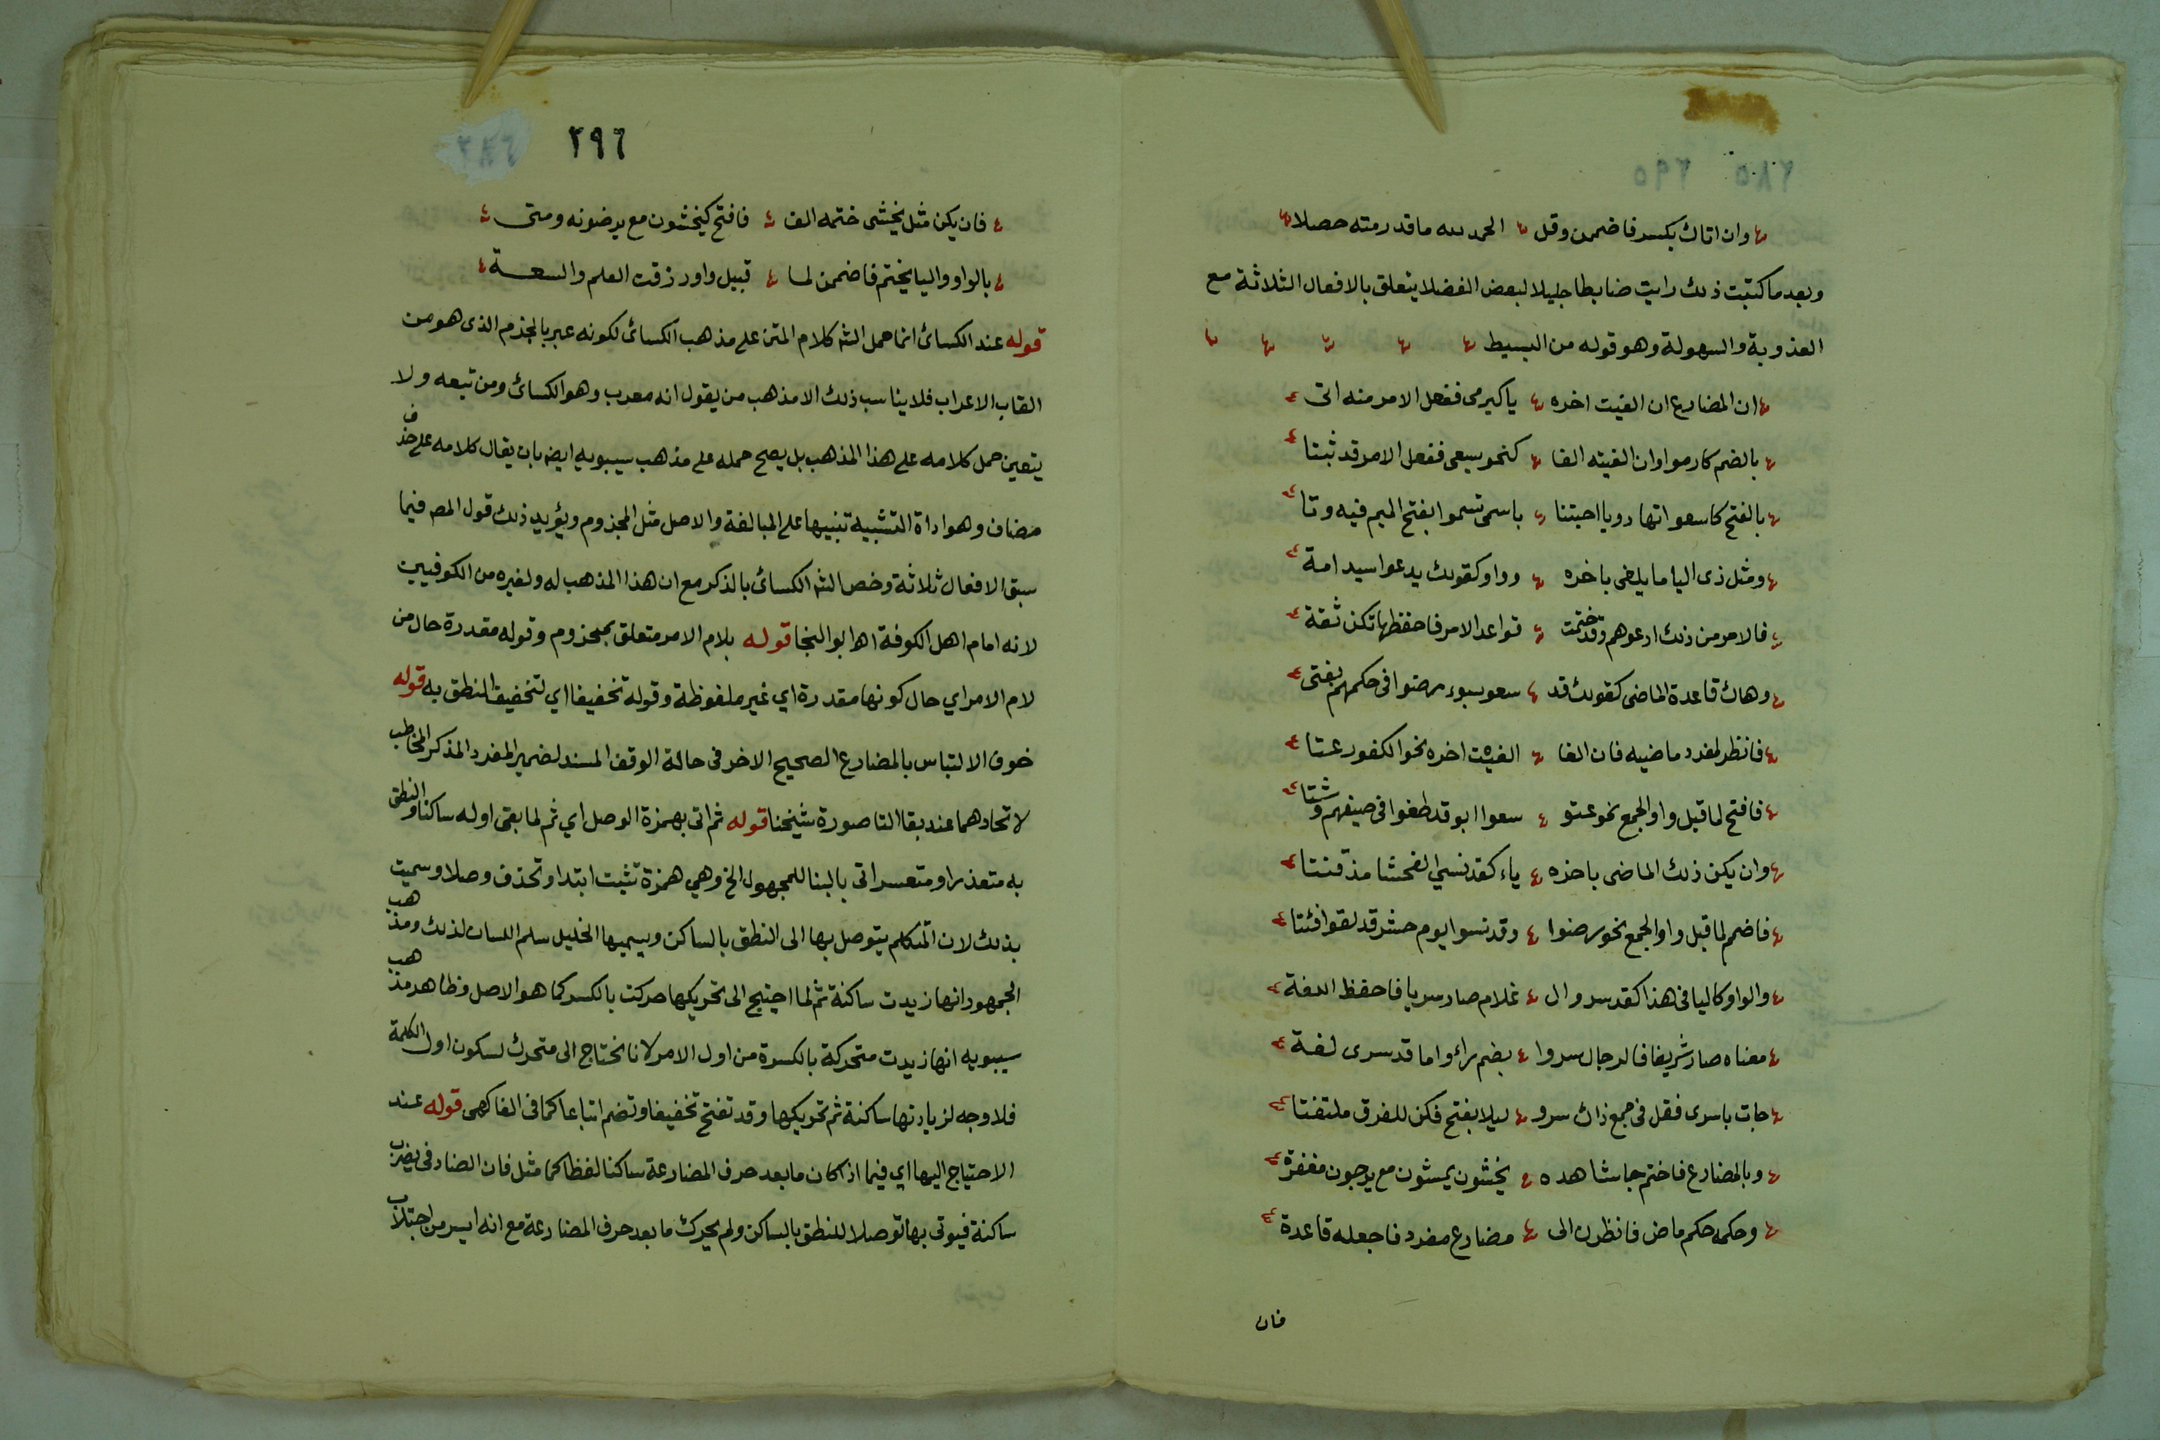 ٢٨٥ ٢٩٥
وان اتاك بكسر فاضممن وقل الحمد لله ما قد رمته حصلا
وبعد ما كتبت ذلك رايت ضابطا جليلا لبعض الفضلا يتعلق بالافعال الثلاثة مع
العذوبة والسهولة وهو قوله من البسيط
ان المضارع ان الفيت اخره ياكيرمى ففعل الامر منه اتى
بالضم كارموا وان الفيته الفا كنحو سيعى ففعل الامر قد ثبتا
بالفتح كاسعوا تها دو يا احبتنا باسمى تسموا بفتح الميم فيه وتا
ومثل ذى اليا ما يلفى باخره وواو كقولك يدعوا سيد امة
فالامر من ذلك ادعوهم وقد ختمت قواعد الامر فاحفظها تكن ثقة
وهاك قاعدة الماضى كقولك قد سعو سبوء رضوا فى حكمهم بفتى
فانظر لمفرد ماضيه فان الفا الفيت اخره نحو الكفور عتا
فافتح لما قبل واو الجمع نحو عتو سعوا ابو قد طغوا فى صيفهم وشتا
وان يكن ذلك الماضى باخره ياء كقد نسي الفحشا مذ قنتا
فاضمم لما قبل واو الجمع نحو رضوا وقد نسوا يوم حشر قد لقوا فئتا
والواو كاليا فى هذا كقد سر وال غلام صار سريا فاحفظ اللغة
معناه صار شريفا فالرجال سروا بضم راء واما قد سرى لغة
جات باسرى فقل فى جمع ذاك سرو ليلا بفتح فكن للفرق ملتفتا
وبالمضارع فاختم جا شاهده يخشون يمشون مع يرجون مغفرة
وحكمه حكم ماض فانظرن الى مضارع مفرد فاجعله قاعدة
فان
٢٩٦ ٢٨٦
فان يكن مثل يخشى ختمه الف فافتح كيخشون مع يرضونه ومتى
بالواو واليا يختم فاضممن لما قبيل واو رزقت العلم والسعة
قوله عند الكسائ انما حمل الشه كلام المتن على مذهب الكسائ لكونه عبر بالجزم الذى هو من
القاب الاعراب فلا يناسب ذلك الا مذهب من يقول انه معرب وهو الكسائ ومن تبعه ولا
يتعين حمل كلامه على هذا المذهب بل يصح حمله على مذهب سيبويه ايضه بان يقال كلامه على حذف
مضاف وهو اداة التشبيه تنبيها على المبالغة والاصل مثل المجزوم ويؤيد ذلك قول المصه فيما
سبق الافعال ثلاثة وخص الشه الكسائ بالذكر مع ان هذا المذهب له ولغيره من الكوفيين
لانه امام اهل الكوفة اه ابو النجا قوله بلام الامر متعلق بمجزوم وقوله مقدرة حال من
لام الامر اي حال كونها مقدرة اي غير ملفوظة وقوله تخفيفا اي لتخفيف النطق به قوله
خوف الالتباس بالمضارع الصحيح الاخر فى حالة الوقف المسند لضمير المفرد المذكر المخاطب
لاتحادهما عند بقا التا صورة شيخنا قوله ثم اتى بهمزة الوصل اي ثم لما بقى اوله ساكنا والنطق
به متعذر او متعسر اتى بالبنا للمجهول الخ وهي همزة تثبت ابتدا وتحذف وصلا وسميت
بذلك لان المتكلم يتوصل بها الى النطق بالساكن ويسميها الخليل سلم اللسان لذلك ومذهب
الجمهور انها زيدت ساكنة ثم لما احتيج الى تحريكها حركت بالكسر كما هو الاصل وظاهر مذهب
سيبويه انها زيدت متحركة بالكسرة من اول الامر لانا نحتاج الى متحرك لسكون اول الكلمة
فلا وجه لزيادتها ساكنة ثم تحريكها وقد تفتح تخفيفا وتضم اتباعا كما فى الفاكهى قوله عند
الاحتياج اليها اي فيما اذا كان ما بعد حرف المضارعة ساكنا لفظا كما مثل فان الضاد فى يضرب
ساكنة فيوتى بها توصلا للنطق بالساكن ولم يحرك ما بعد حرف المضارعة مع انه ايسر من اجتلاب